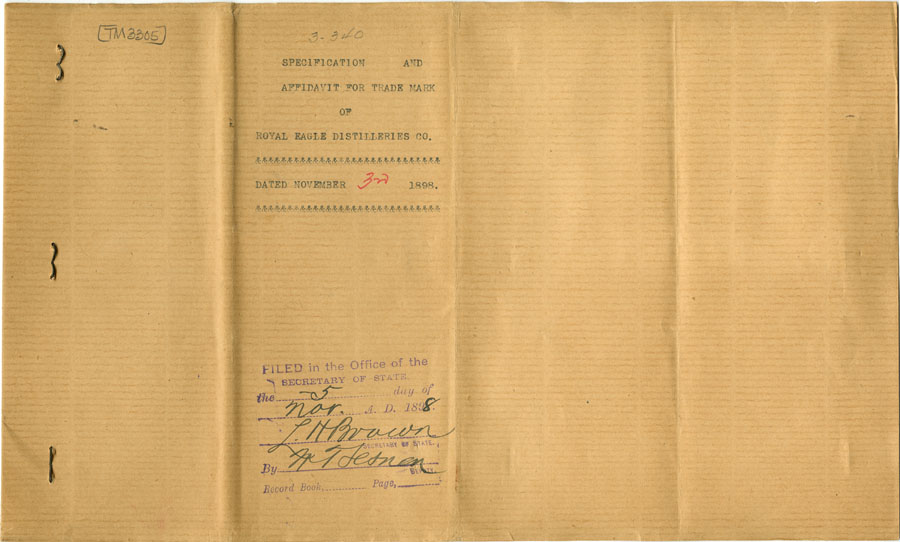 TM3305
3-340
SPECIFICATION AND
AFFIDAVIT FOR TRADE MARK
OF
ROYAL EAGLE DISTILLERIES CO.
DATED NOVEMBER 3rd 1898.
FILED in the Office of the
SECRETARY OF STATE.
the 5 day of
Nov. A. D. 1898.
L H Brown
SECRETARY OF STATE.
By
Record Book, Page,